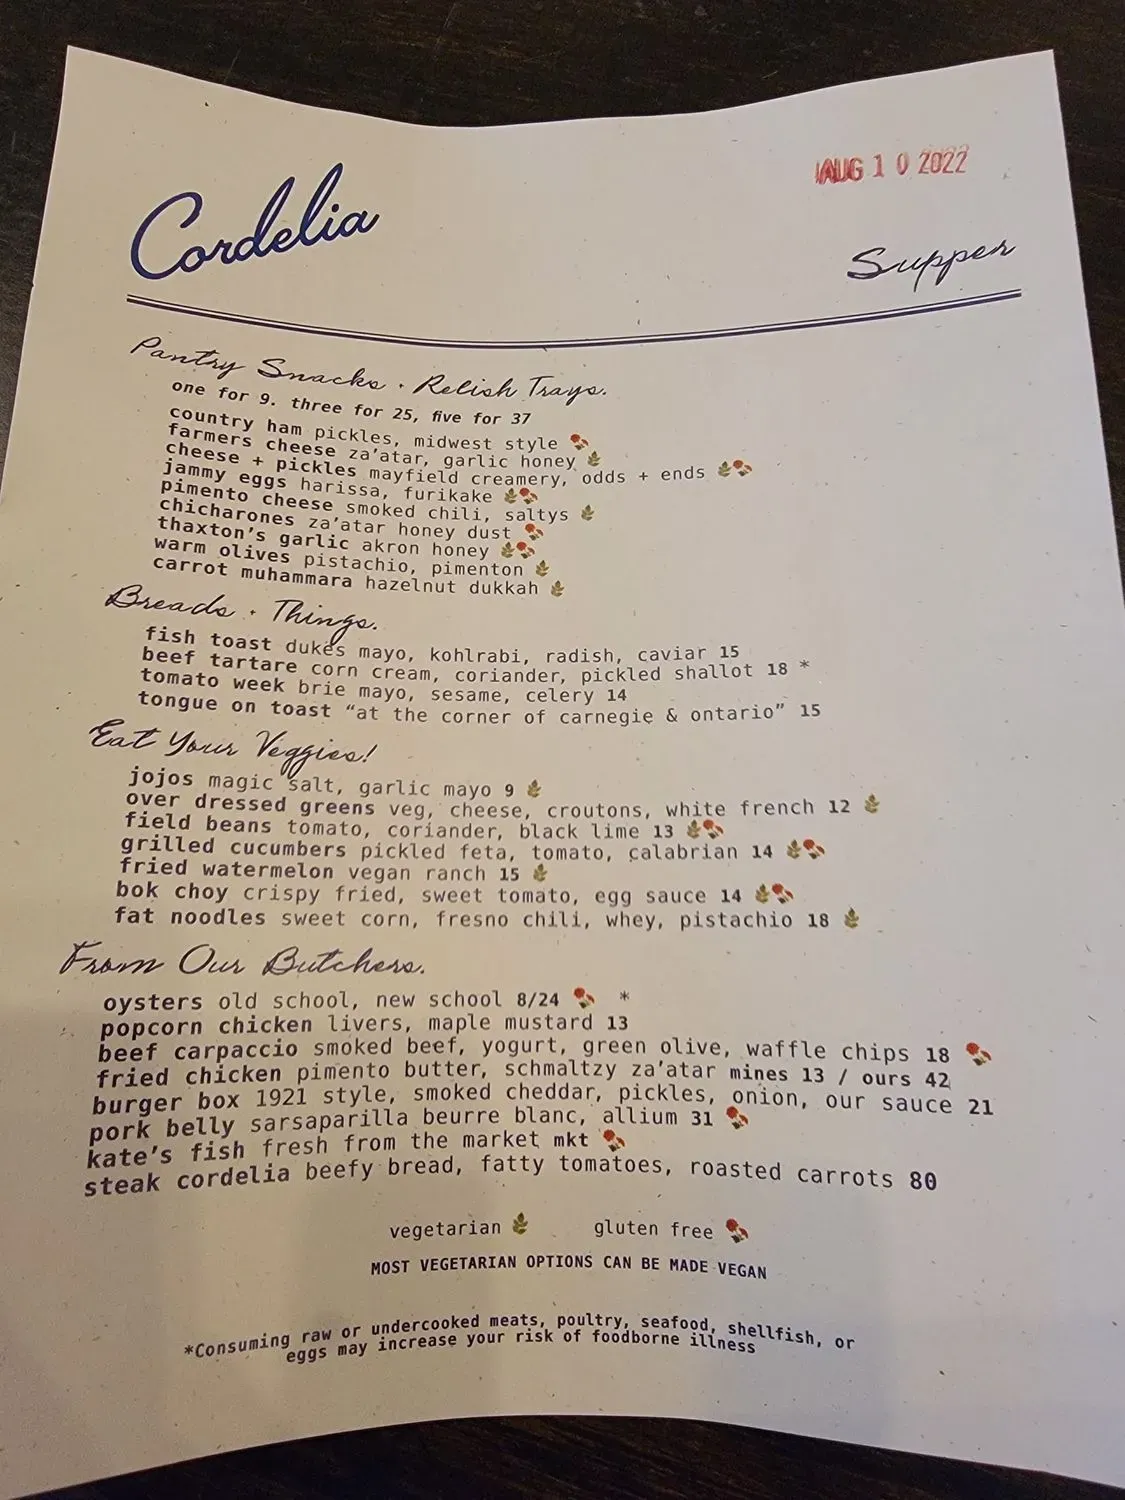 AUG 10 2022
Cordelia
Supper
Pantry Snacks · Relish Trays.
one for 9. three for 25, five for 37
country ham pickles, midwest style
farmers cheese za'atar, garlic honey
cheese + pickles mayfield creamery, odds + ends
jammy eggs harissa, furikake
pimento cheese smoked chili, saltys
chicharones za'atar honey dust
thaxton's garlic akron honey
warm olives pistachio, pimenton
carrot muhammara hazelnut dukkah
Breads · Things.
fish toast dukes mayo, kohlrabi, radish, caviar 15
beef tartare corn cream, coriander, pickled shallot 18 *
tomato week brie mayo, sesame, celery 14
tongue on toast "at the corner of carnegie & ontario" 15
Eat Your Veggies!
jojos magic salt, garlic mayo 9
over dressed greens veg, cheese, croutons, white french 12
field beans tomato, coriander, black lime 13
grilled cucumbers pickled feta, tomato, calabrian 14
fried watermelon vegan ranch 15
bok choy crispy fried, sweet tomato, egg sauce 14
fat noodles sweet corn, fresno chili, whey, pistachio 18
From Our Butchers.
oysters old school, new school 8/24 *
popcorn chicken livers, maple mustard 13
beef carpaccio smoked beef, yogurt, green olive, waffle chips 18
fried chicken pimento butter, schmaltzy za'atar mines 13 / ours 42
burger box 1921 style, smoked cheddar, pickles, onion, our sauce 21
pork belly sarsaparilla beurre blanc, allium 31
kate's fish fresh from the market mkt
steak cordelia beefy bread, fatty tomatoes, roasted carrots 80
vegetarian gluten free
MOST VEGETARIAN OPTIONS CAN BE MADE VEGAN
*Consuming raw or undercooked meats, poultry, seafood, shellfish, or
eggs may increase your risk of foodborne illness